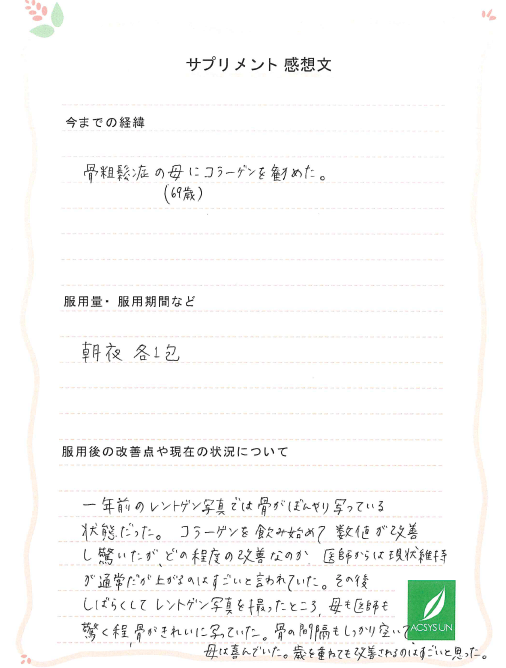 サプリメント 感想文
今までの経緯
骨粗鬆症の母にコラーゲンを勧めた。
(69歳)
服用量・服用期間など
朝夜 各1包
服用後の改善点や現在の状況について
一年前のレントゲン写真では骨がぼんやり写っている
状態だった。 コラーゲンを飲み始めて 数値が改善
し驚いたが、どの程度の改善なのか 医師からは現状維持
が通常だが上がるのはすごいと言われていた。その後
しばらくして レントゲン写真を撮ったところ、母も医師も
驚く程、骨がきれいに写っていた。骨の間隔もしっかり空いて
母は喜んでいた。歳を重ねても改善されるのはすごいと思った。
ACSYSUN